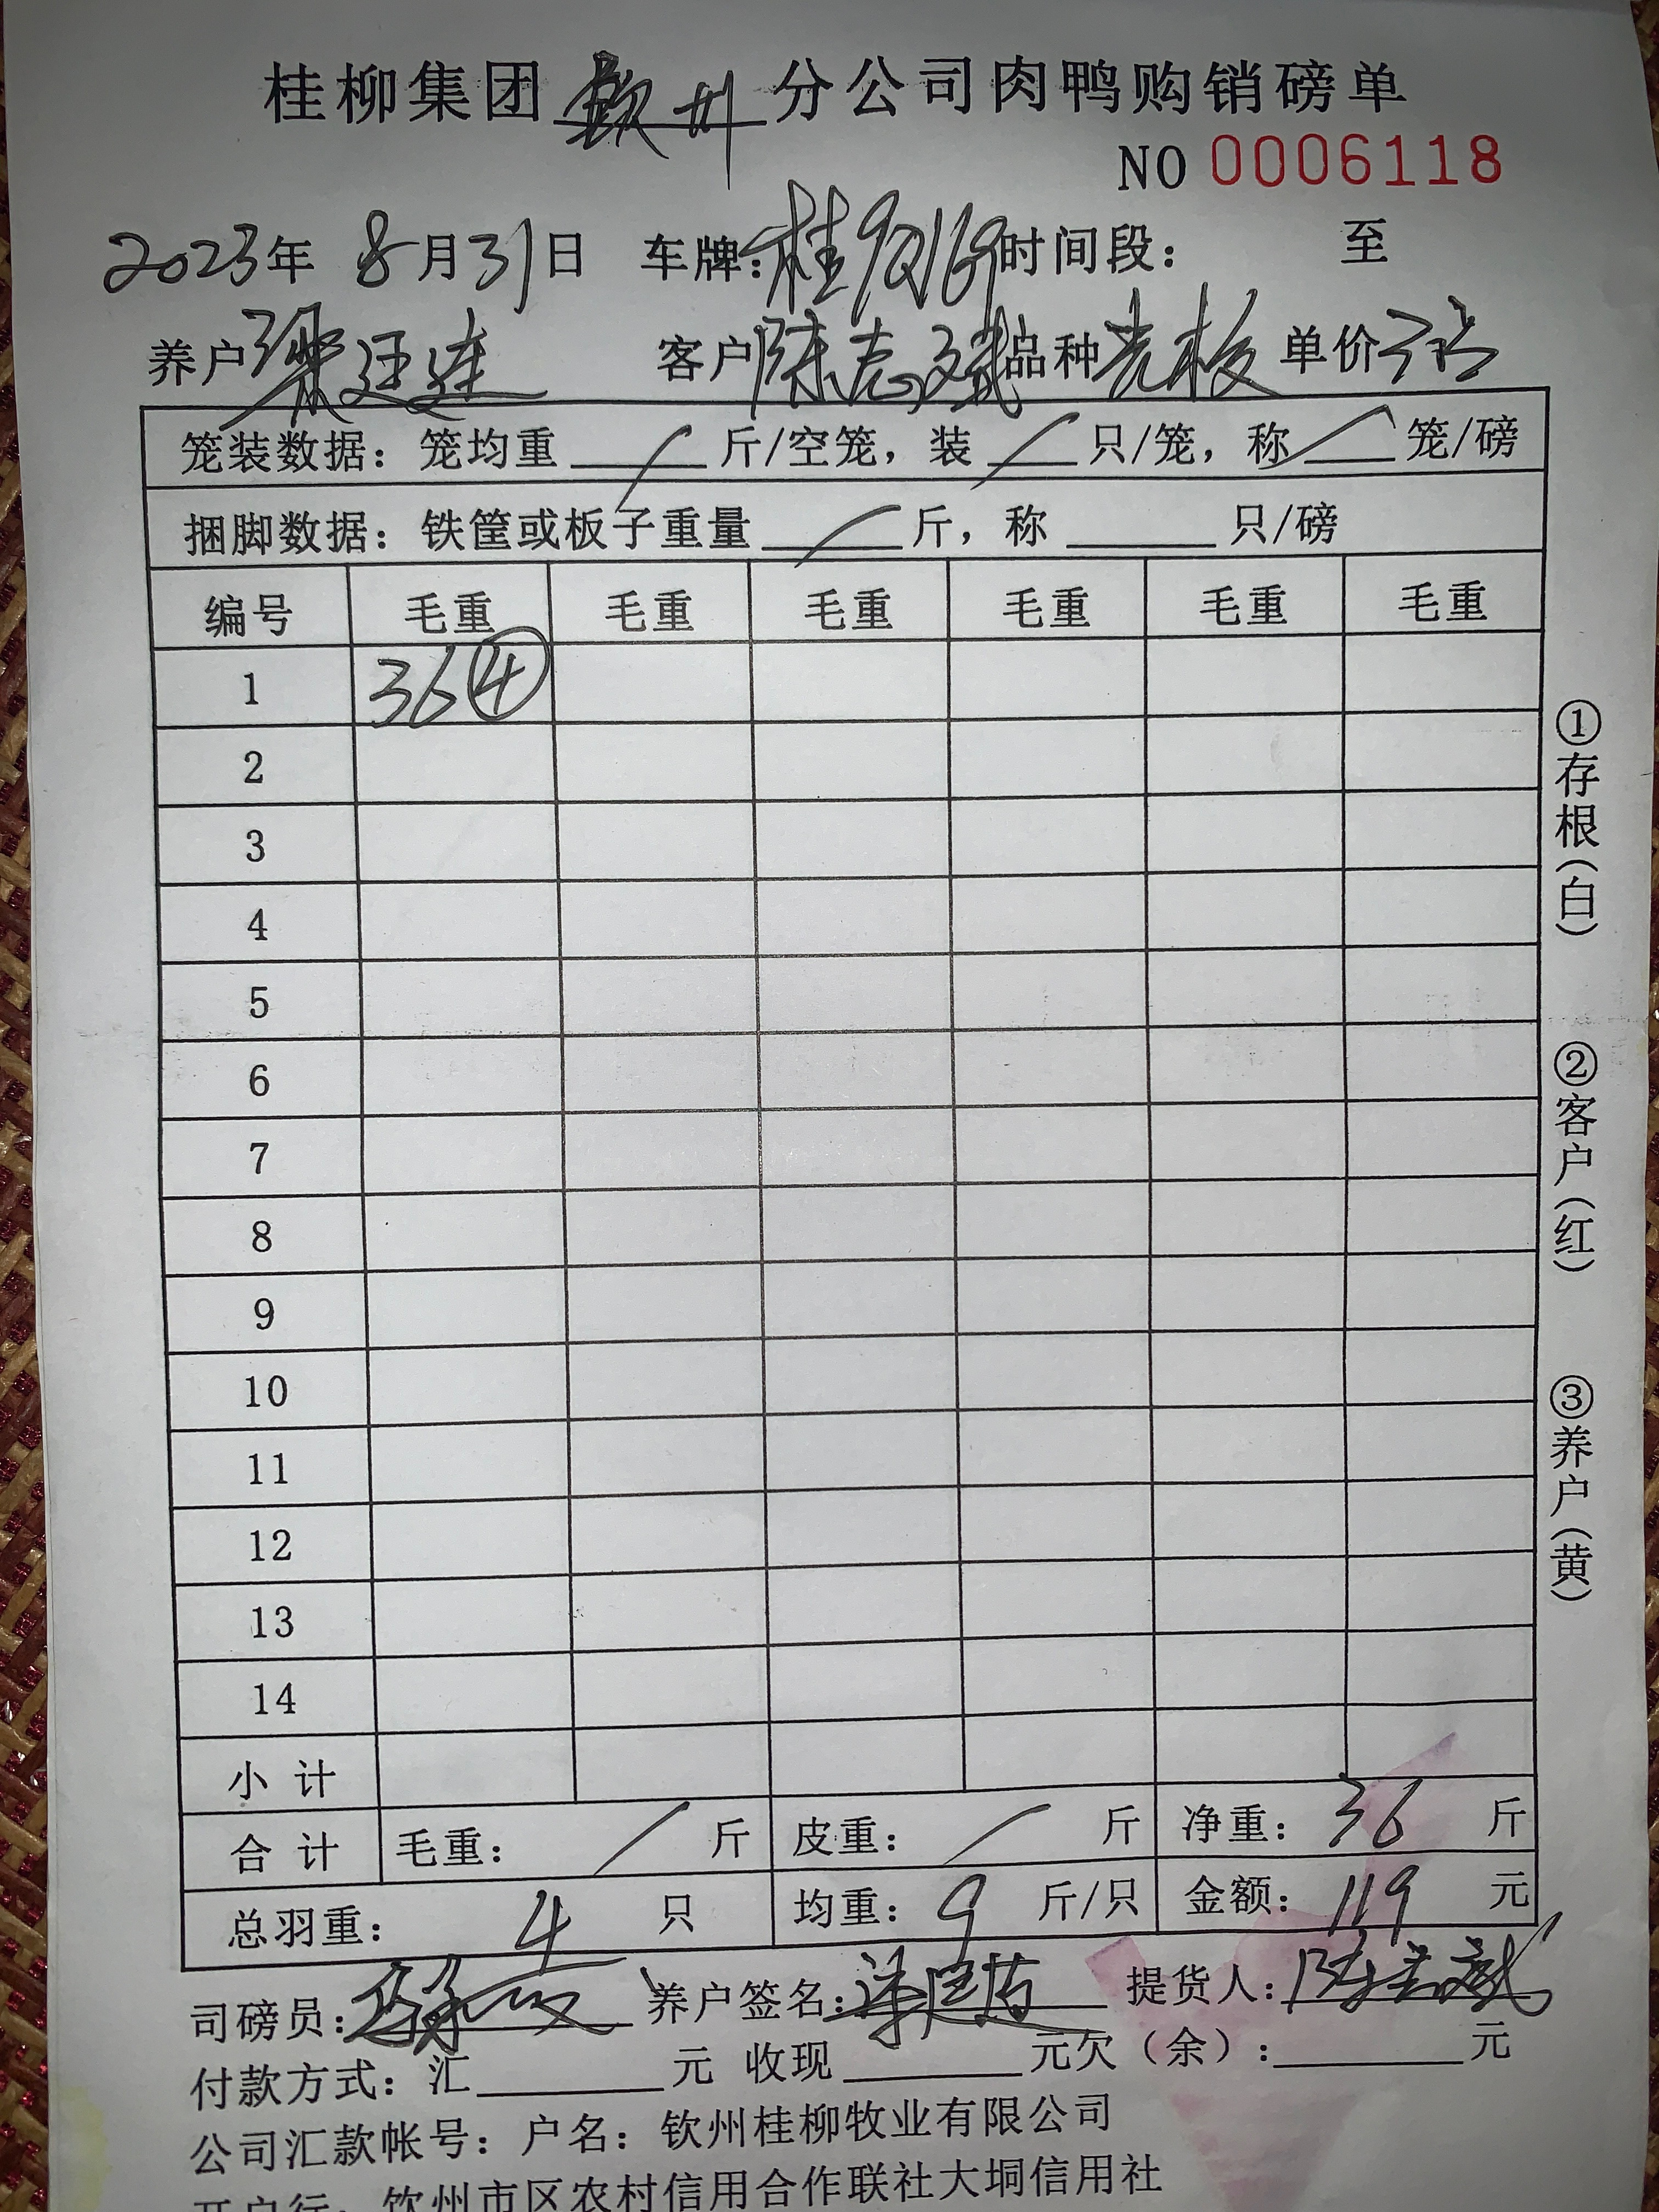 桂柳集团 钦州 分公司肉鸭购销磅单
NO 0006118
2023年 8月31日 车牌:桂 时间段: 至
养户 客户 陈志斌 品种 单价
笼装数据: 笼均重 / 斤/空笼, 装 / 只/笼, 称 / 笼/磅
捆脚数据: 铁筐或板子重量 / 斤, 称 只/磅
编号 毛重 毛重 毛重 毛重 毛重 毛重
1 36④
2
3
4
5
6
7
8
9
10
11
12
13
14
小计
合计 毛重: / 斤 皮重: / 斤 净重: 36 斤
总羽重: 4 只 均重: 9 斤/只 金额: 119 元
司磅员: 养户签名: 提货人: 陈志斌
付款方式: 汇 元 收现 元欠(余): 元
公司汇款帐号: 户名: 钦州桂柳牧业有限公司
开户行: 钦州市区农村信用合作联社大垌信用社
①存根(白)
②客户(红)
③养户(黄)